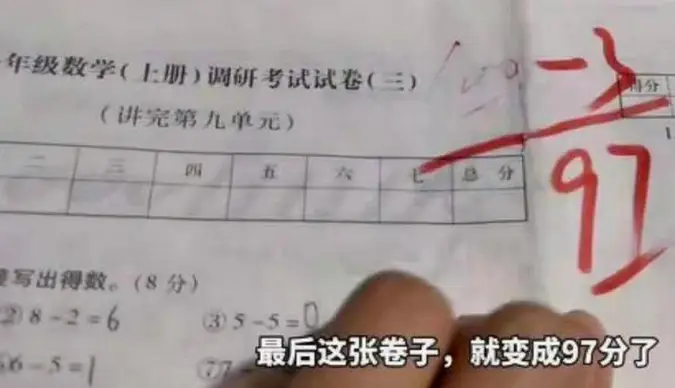 年级数学(上册)调研考试试卷(三)
(讲完第九单元)
-3
97
得分
二 三 四 五 六 七 总分
写出得数。(8分)
②8-2=6 ③5-5=0
6-5=1 ⑦7
最后这张卷子，就变成97分了